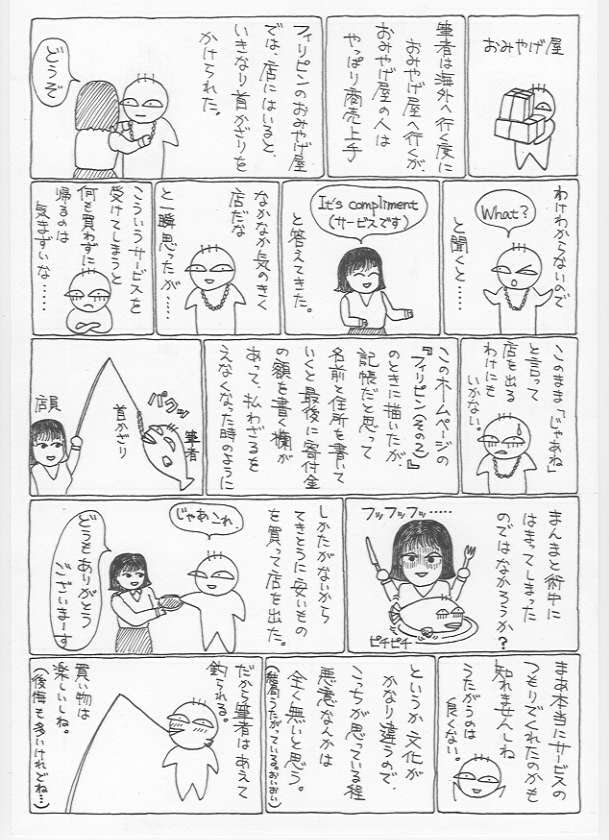 おみやげ屋
筆者は海外へ行く度に
おみやげ屋へ行くが、
おみやげ屋の人は
やっぱり商売上手
フィリピンのおみやげ屋
では、店にはいると、
いきなり首かざりを
かけられた。
どうぞ
わけわからないので
What?
と聞くと……
It's compliment
(サービスです)
と答えてきた。
なかなか気のきく
店だな
と一瞬思ったが……
こういうサービスを
受けてしまうと
何も買わずに
帰るのは
気まずいな……
このまま「じゃあね」
と言って
店を出る
わけにも
いかない。
このホームページの
『フィリピン(その2)』
のときに描いたが、
記帳だと思って
名前と住所を書いて
いくと最後に寄付金
の額を書く欄が
あって、払わざるを
えなくなった時のように
パクッ
筆者
首かざり
店員
まんまと術中に
はまってしまった
のではなかろうか?
フッフッフッ……
ピチピチ
しかたがないから
てきとうに安いもの
を買って店を出た。
じゃあこれ。
どうもありがとう
ございまーす
まあ本当にサービスの
つもりでくれたのかも
知れませんしね
うたがうのは
良くない。
というか文化が
かなり違うので、
こっちが思っている程
悪意なんかは
全く無いと思う。
(結局うたがっている。おいおい)
だから筆者はあえて
釣られる。
買い物は
楽しいしね。
(後悔も多いけれどね…)